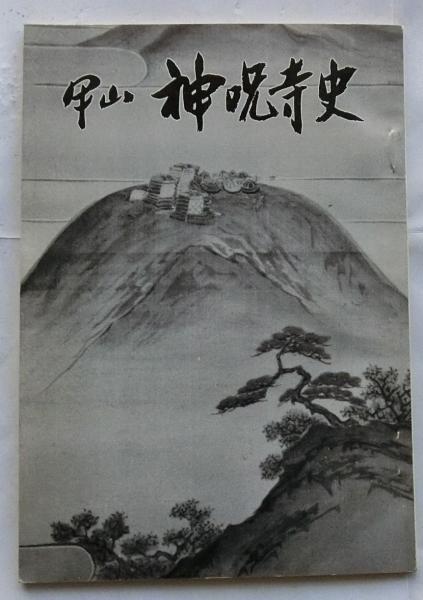 甲山 神呪寺史